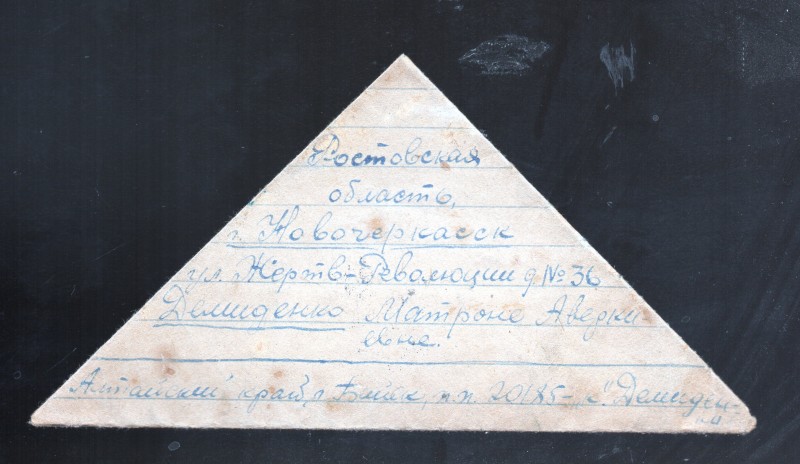 Ростовская
область,
г. Новочеркасск
ул. Жертв-Революции д № 36
Демиденко Матроне Аведки
евне.
Алтайский край, г. Бийск, п.п. 20185-„с". Демиден-